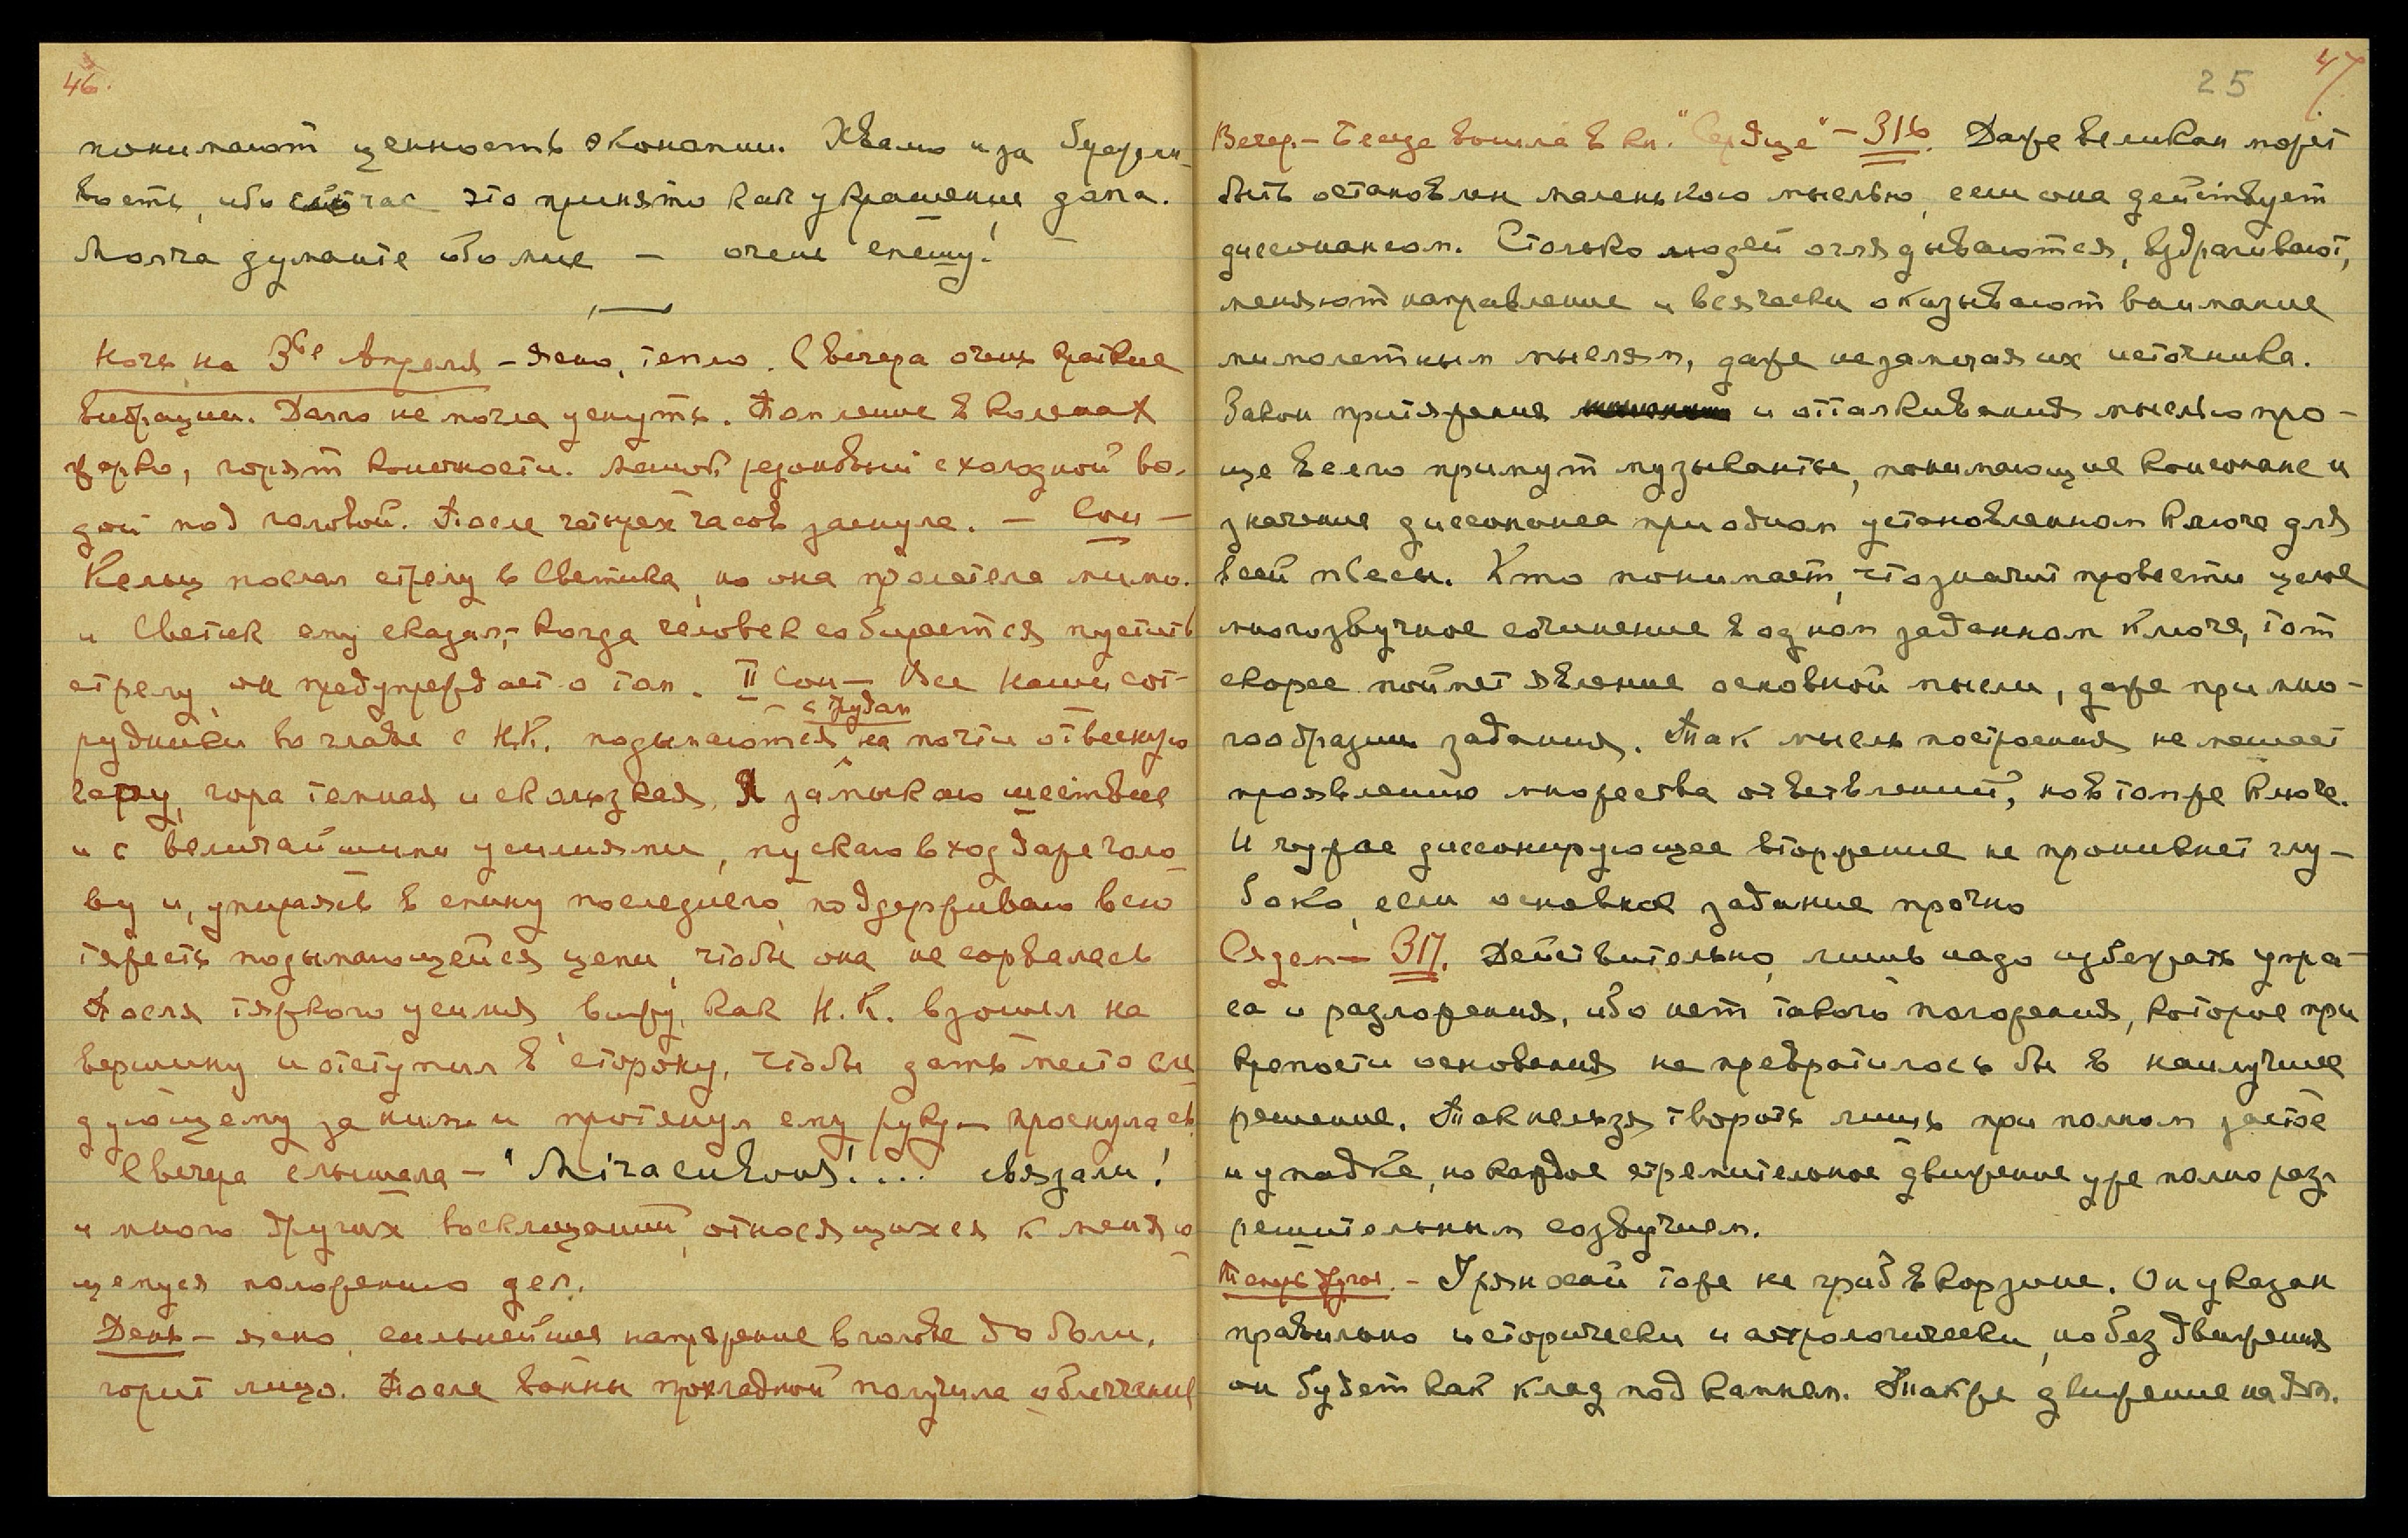 46.
понимают ценность экономии. Хвалю и за бережли-
вость, ибо сейчас это принято как украшение дома.
Молча думайте обо мне — очень спешу!
Ночь на 3ье Апреля — ясно, тепло. С вечера очень краткие
вибрации. Долго не могла уснуть. Томление в коленах
жарко, горят конечности. Мешок резиновый с холодной во-
дой под головой. После четырех часов заснула. — Сон —
Кельц послал стрелу в Светика, но она пролетела мимо.
и Светик ему сказал, — когда человек собирается пустить
стрелу, он предупреждает о том. II Сон — Все наши сот-
рудники во главе с Н.К. подымаются с трудом на почти отвесную
гору, гора темная и скользкая. Я замыкаю шествие
и с величайшими усилиями, пускаю в ход даже голо
ву и, упираясь в спину последнего, поддерживаю всю
тяжесть подымающейся цепи, чтобы она не сорвалась
После тяжкого усилия, вижу, как Н.К. взошел на
вершину и отступил в сторону, чтобы дать место сле
дующему за ним и протянул ему руку — проснулась.
С вечера слышала — "
связали!
и много других восклицаний, относящихся к меняю
щемуся положению дел.
День — ясно, сильнейшее напряжение в голове до боли,
горит лицо. После ванны прохладной получила облегчение
25
47
Вечер. — Беседа вошла в кн. "Сердце" — 316. Даже великан может
быть остановлен маленькою мыслью, если она действует
диссонансом. Столько людей оглядываются, вздрагивают,
меняют направление и всячески оказывают внимание
мимолетным мыслям, даже не замечая их источника.
Закон притяжения и отталкивания мыслью про-
ще всего примут музыканты, понимающие консонанс и
значение диссонанса при одном установленном ключе для
всей пьесы. Кто понимает, что значит провести целое
многозвучное сочинение в одном заданном ключе, тот
скорее поймет явление основной мысли, даже при мно-
гообразии задания. Так мысль построения не мешает
проявлению множества ответвлений, но в том же ключе.
И чужое диссонирующее вторжение не проникнет глу-
боко, если основное задание прочно
Сядем — 317. Действительно, лишь надо избежать ужа-
са и разложения, ибо нет такого положения, которое при
крепости основания не превратилось бы в наилучшее
решение. Так нельзя творить лишь при полном застое
и упадке, но каждое стремительное движение уже полно раз-
решительным созвучием.
Теперь другое. — Грянский тоже не гриб в корзине. Он указан
правильно исторически и астрологически, но без движения
он будет как клад под камнем. Также движение надо.